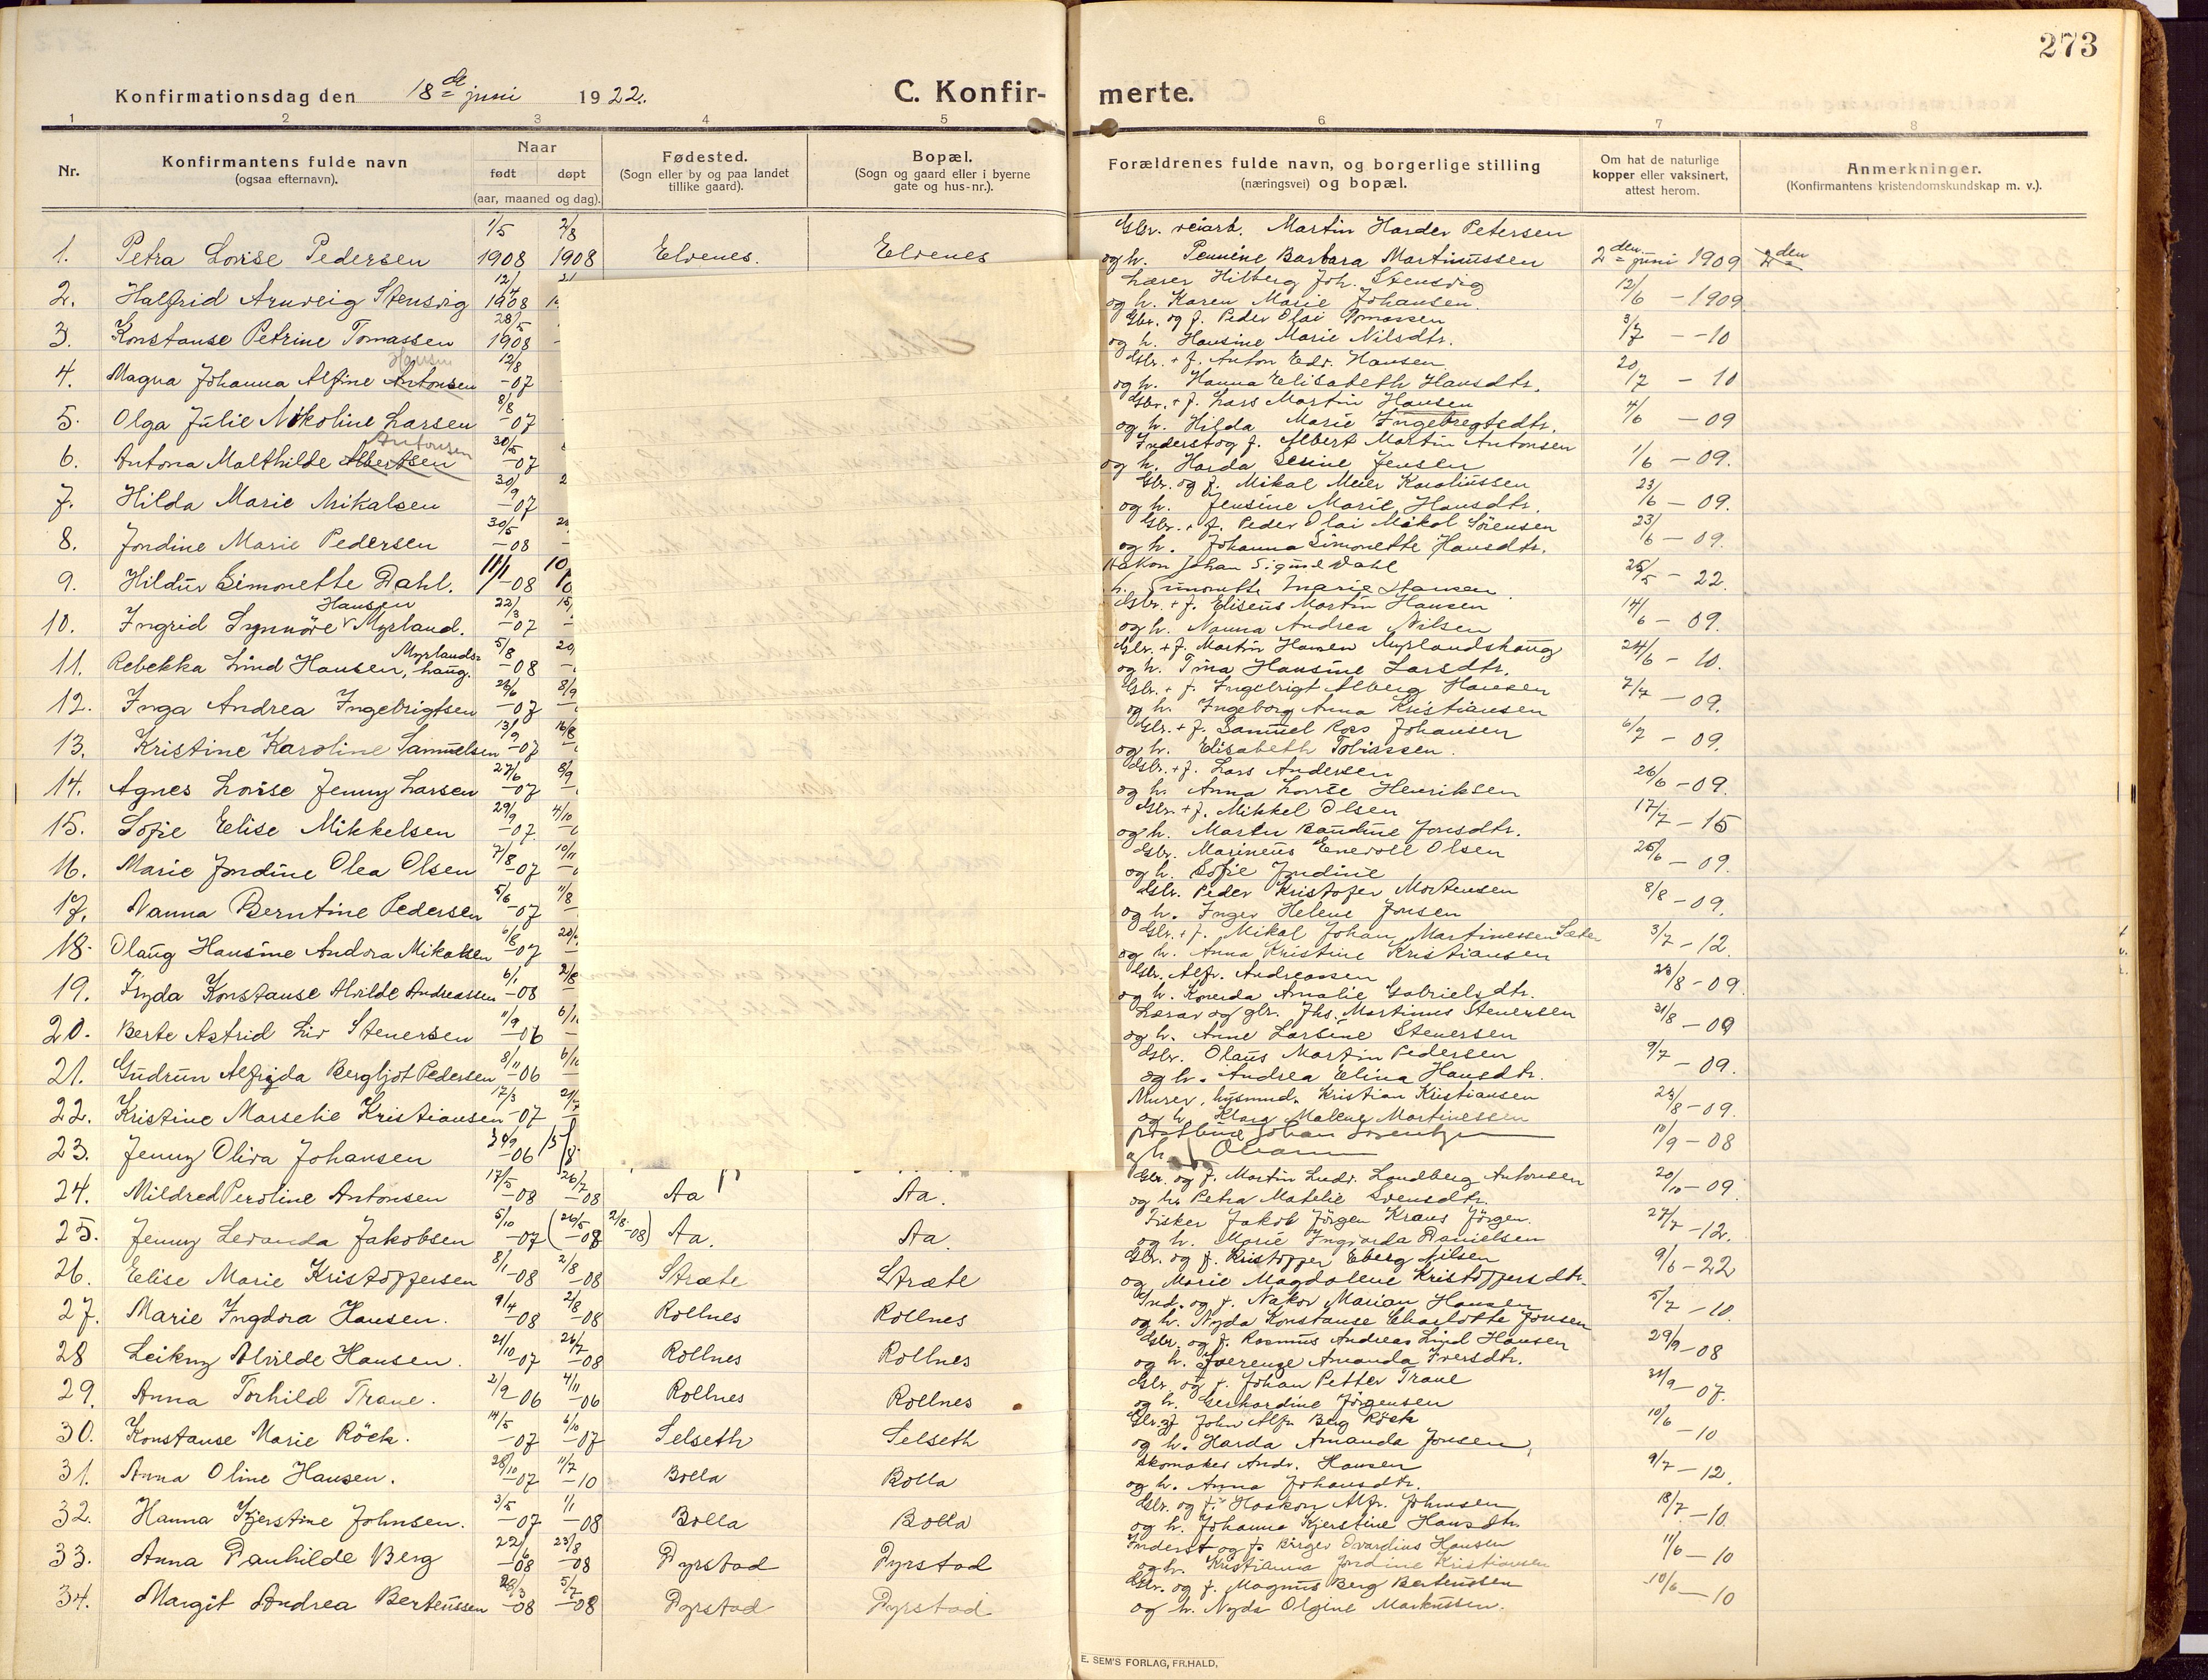 273
Konfirmationsdag den 18de juni 1922.
C. Konfirmerte.
1 2 3 4 5 6 7 8
Nr.
Konfirmantens fulde navn
(ogsaa efternavn).
Naar
født døpt
(aar, maaned og dag).
Fødested.
(Sogn eller by og paa landet
tillike gaard).
Bopæl.
(Sogn og gaard eller i byerne
gate og hus-nr.).
Forældrenes fulde navn, og borgerlige stilling
(næringsvei) og bopæl.
Om hat de naturlige
kopper eller vaksinert,
attest herom.
Anmerkninger.
(Konfirmantens kristendomskundskap m. v.).
Gbr. veiarb. Martin Harder Petersen
1. Petra Lovise Pedersen 1/5 1908 2/8 1908 Elvenes. Elvenes og h. Pernine Barbara Martinussen 2den juni 1909 2den
Lærer Hilberg Joh. Stensvig
2. Halfrid Arnveig Stensvig 12/4 1908 og h. Karen Marie Johansen 12/6 - 1909
Gbr. og f. Peder Olai Tomassen
3. Konstanse Petrine Tomassen 28/5 1908 og h. Hansine Marie Nilsdtr. 3/7 - -10
Gbr. + f. Anton Edv. Hansen
4. Magna Johanna Alfine Antonsen Hansen 12/8 -07 og h. Hanna Elisabeth Hansdtr. 20/7 - 10
Gbr. + f. Lars Martin Hansen
5. Olga Julie Nikoline Larsen 8/8 -07 og h. Hilda Marie Ingebregtsdtr. 4/6 - 09
Inderst og f. Albert Martin Antonsen
6. Antona Malthilde Albertsen Antonsen 30/5 -07 og h. Harda Sesine Jensen 1/6 - 09.
Gbr. og f. Mikal Meier Karoliussen
7. Hilda Marie Mikalsen 30/9 -07 og h. Jensine Marie Hansdtr. 23/6 - 09.
Gbr. + f. Peder Olai Mikal Sörensen
8. Jondine Marie Pedersen 30/5 -08 og h. Johanna Simonette Hansdtr. 23/6 - 09.
Håkon Johan Sigurd Dahl
9. Hildur Simonette Dahl. 11/1 -08 h. Simonette Marie Hansen 25/5 - 22.
Gbr. + f. Eliseus Martin Hansen
10. Ingrid Synnöve Hansen Myrland. 22/3 -07 og h. Nanna Andrea Nilsen 14/6 - 09.
Gbr. + f. Martin Hansen Myrlandshaug
11. Rebekka Lind Hansen, Myrlandshaug. 5/8 -08 og h. Tina Hansine Larsdtr. 24/6 - 10.
Gbr. + f. Ingebrigt Alberg Hansen
12. Inga Andrea Ingebrigtsen 26/6 -07 8/9 og h. Ingeborg Anna Kristiansen 7/7 - 09.
Gbr. + f. Samuel Ross Johansen
13. Kristine Karoline Samuelsen 13/9 -07 16/8 og h. Elisabeth Tobiassen. 6/7 - 09.
Gbr. + f. Lars Andersen
14. Agnes Lovise Jenny Larsen 27/6 -07 8/9 og h. Anna Lovise Henriksen 26/6 - 09.
Gbr. + f. Mikkel Olsen
15. Sofie Elise Mikkelsen 29/9 -07. 4/10 og h. Marta Baudine Jonsdtr. 17/7 - 15
Gbr. Marineus Enevold Olsen
16. Marie Jondine Olea Olsen 7/8 -07 10/11 og h. Sofie Jondine 25/6 - 09.
Gbr. Peder Kristofer Mortensen
17. Nanna Berntine Pedersen 5/6 -07 11/8 og h. Inger Helene Jonsen 8/8 - 09.
Gbr. + f. Mikal Johan Martinessen Sæter
18. Olaug Hansine Andora Mikalsen 6/8 -07 og h. Anna Kristine Kristiansen 3/7 - 12.
Gbr. Alfr. Andreassen
19. Fryda Konstanse Alvilde Andreassen 6/1 -08 2/8 og h. Konerda Amalie Gabrielsdtr. 28/8 - 09.
Lærer og gbr. Jhs. Martinus Stenersen
20. Berte Astrid Liv Stenersen 11/9 -06 og h. Anne Larsine Stenersen 31/8 - 09
Gbr. Olaus Martin Pedersen
21. Gudrun Alfrida Bergljot Pedersen 8/11 -06 og h. Andrea Elina Hansdtr. 9/7 - 09.
Murer, husmnd. Kristian Kristiansen
22. Kristine Marselie Kristiansen 17/3 -07 og h. Klara Malene Martinessen 23/8 - 09.
Johan Lorentzen
23. Jenny Oliva Johansen -06 og h. 10/9 - 08
Gbr. og f. Martin Ludv. Landberg Antonsen
24. Mildred Peroline Antonsen 17/5 -08 26/7 -08 Aa Aa. og h. Petra Matelie Svensdtr. 20/10 - 09.
Fisker Jakob Jörgen Kraus Jörgen.
25. Jenny Levanda Jakobsen 5/10 -07 (26/5 -08 2/8 -08) Aa. Aa. og h. Marie Ingvarda Danielsen 27/7 - 12.
Gbr. og f. Kristoffer Eberg Nilsen
26. Elise Marie Kristoffersen 8/1 -08 2/8 -08 Stræte Stræte og Marie Magdalene Kristoffersdtr. 9/6 - 22
Ind. og f. Nakor Marian Hansen
27. Marie Ingdora Hansen. 9/4 -08 2/8 -08 Rollnes Rollnes og h. Nyda Konstanse Charlotte Jonsen 5/7 - 10.
Gbr. og f. Rasmus Andreas Lind Hansen
28 Leikny Alvilde Hansen. 21/10 -07 26/7 -08 Rollnes Rollnes og h. Iverenze Amanda Iversdtr. 29/9 - 08
Gbr. og f. Johan Petter Trane
29. Anna Torhild Trane. 2/9 -06 4/11 -06 Rollnes Rollnes og h. Gerhardine Jörgensen 21/9 - 07.
Gbr. og f. John Alfr. Berg Röck
30. Konstanse Marie Röck. 14/5 -07 6/10 -07 Selseth Selseth og h. Harda Amanda Jonsen, 10/6 - 10
Skomaker Andr. Hansen
31. Anna Oline Hansen. 28/10 -07 11/7 -10 Bolla Bolla og h. Anna Johansdtr. 9/7 - 12.
Gbr. og f. Haakon Alfr. Johnsen
32. Hanna Kjerstine Johnsen. 3/5 -07 1/1 -08 Bolla Bolla og h. Johanna Kjerstine Hansdtr. 18/7 - 10.
Inderst og f. Birger Evardius Hansen
33. Anna Ranhilde Berg 22/6 -08 23/8 -08 Dyrstad Dyrstad og h. Kristianna Jondine Kristiansen 11/6 - 10
Gbr. og f. Magnus Berg Berteussen
34. Margit Andrea Berteussen 28/3 -08 5/7 -08 Dyrstad Dyrstad og h. Nyda Olgine Markussen. 10/6 - 10
E. SEM'S FORLAG, FR.HALD.